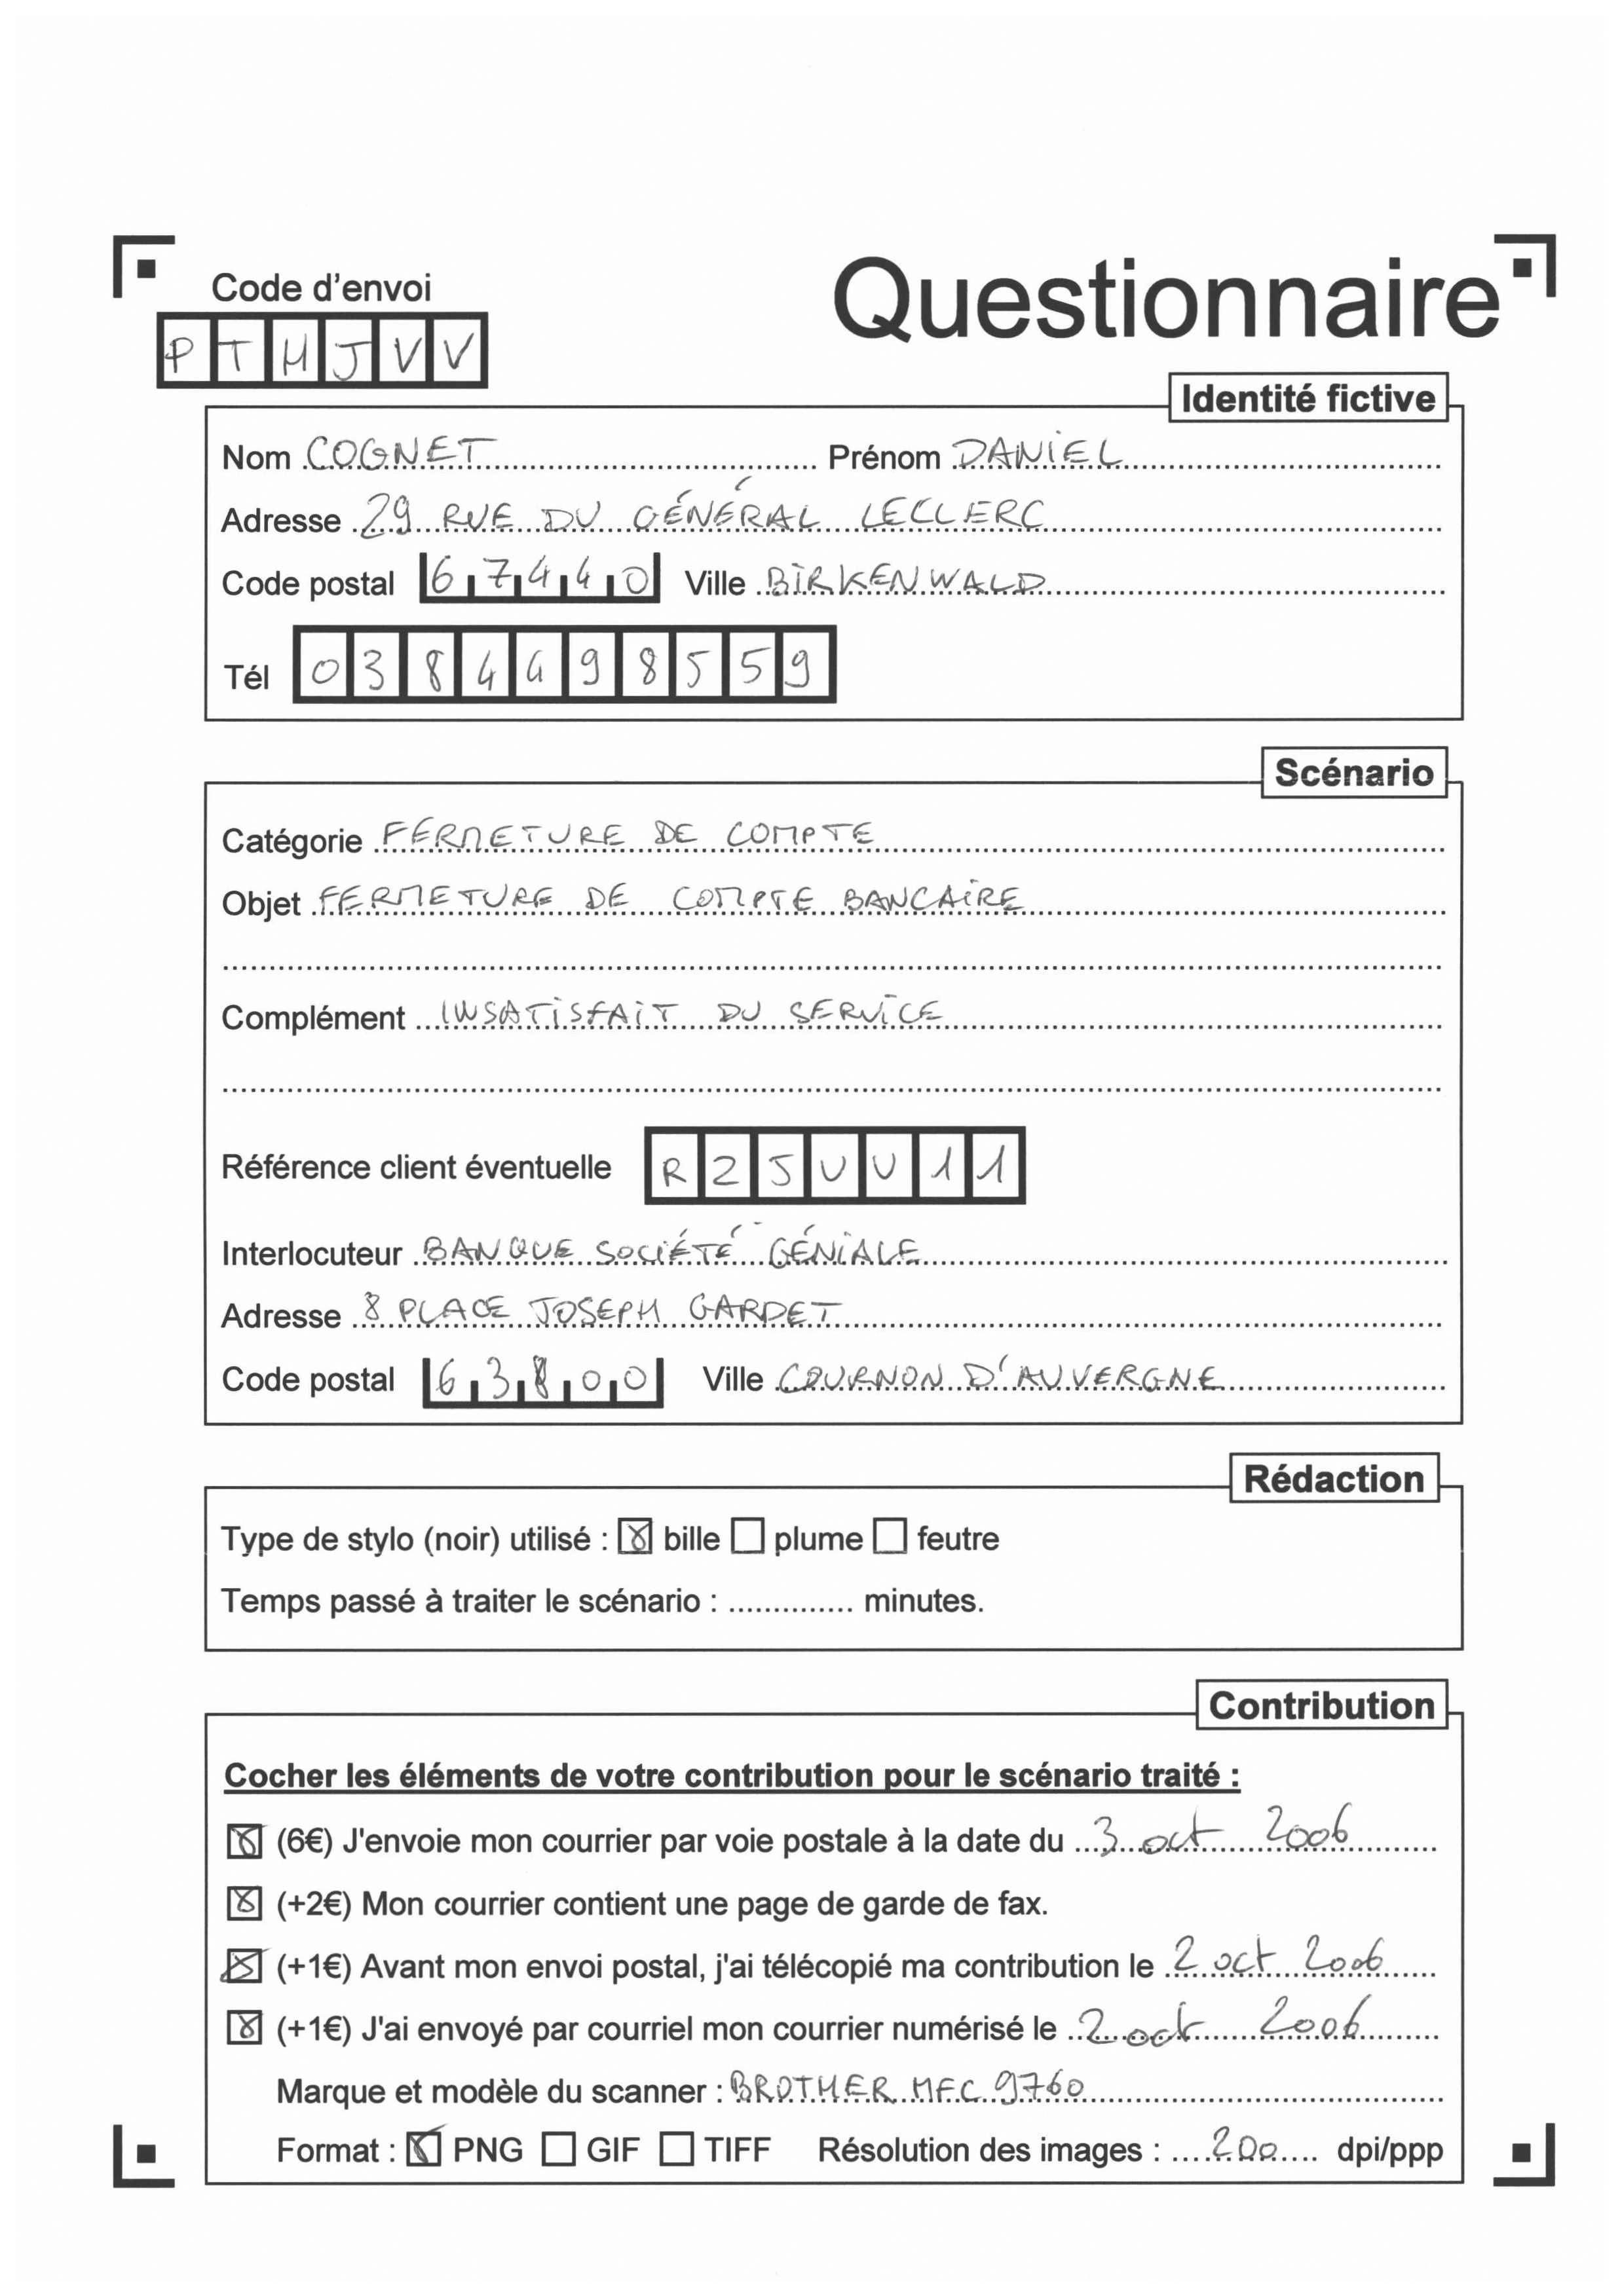 Code d'envoi
Questionnaire
PTHJVV
Identité fictive
Nom COGNET Prénom DANIEL
Adresse 29 RUE DU GÉNÉRAL LECLERC
Code postal 67440 Ville BIRKENWALD
Tél 0384498559
Scénario
Catégorie FERMETURE DE COMPTE
Objet FERMETURE DE COMPTE BANCAIRE
Complément INSATISFAIT DU SERVICE
Référence client éventuelle R25UU11
Interlocuteur BANQUE SOCIÉTÉ GÉNIALE
Adresse 8 PLACE JOSEPH GARDET
Code postal 63800 Ville COURNON D'AUVERGNE
Rédaction
Type de stylo (noir) utilisé : ☒ bille ☐ plume ☐ feutre
Temps passé à traiter le scénario : .............. minutes.
Contribution
Cocher les éléments de votre contribution pour le scénario traité :
☒ (6€) J'envoie mon courrier par voie postale à la date du 3 oct 2006
☒ (+2€) Mon courrier contient une page de garde de fax.
☒ (+1€) Avant mon envoi postal, j'ai télécopié ma contribution le 2 oct 2006
☒ (+1€) J'ai envoyé par courriel mon courrier numérisé le 2 oct 2006
Marque et modèle du scanner : BROTHER MFC 9760
Format : ☒ PNG ☐ GIF ☐ TIFF Résolution des images : 200 dpi/ppp